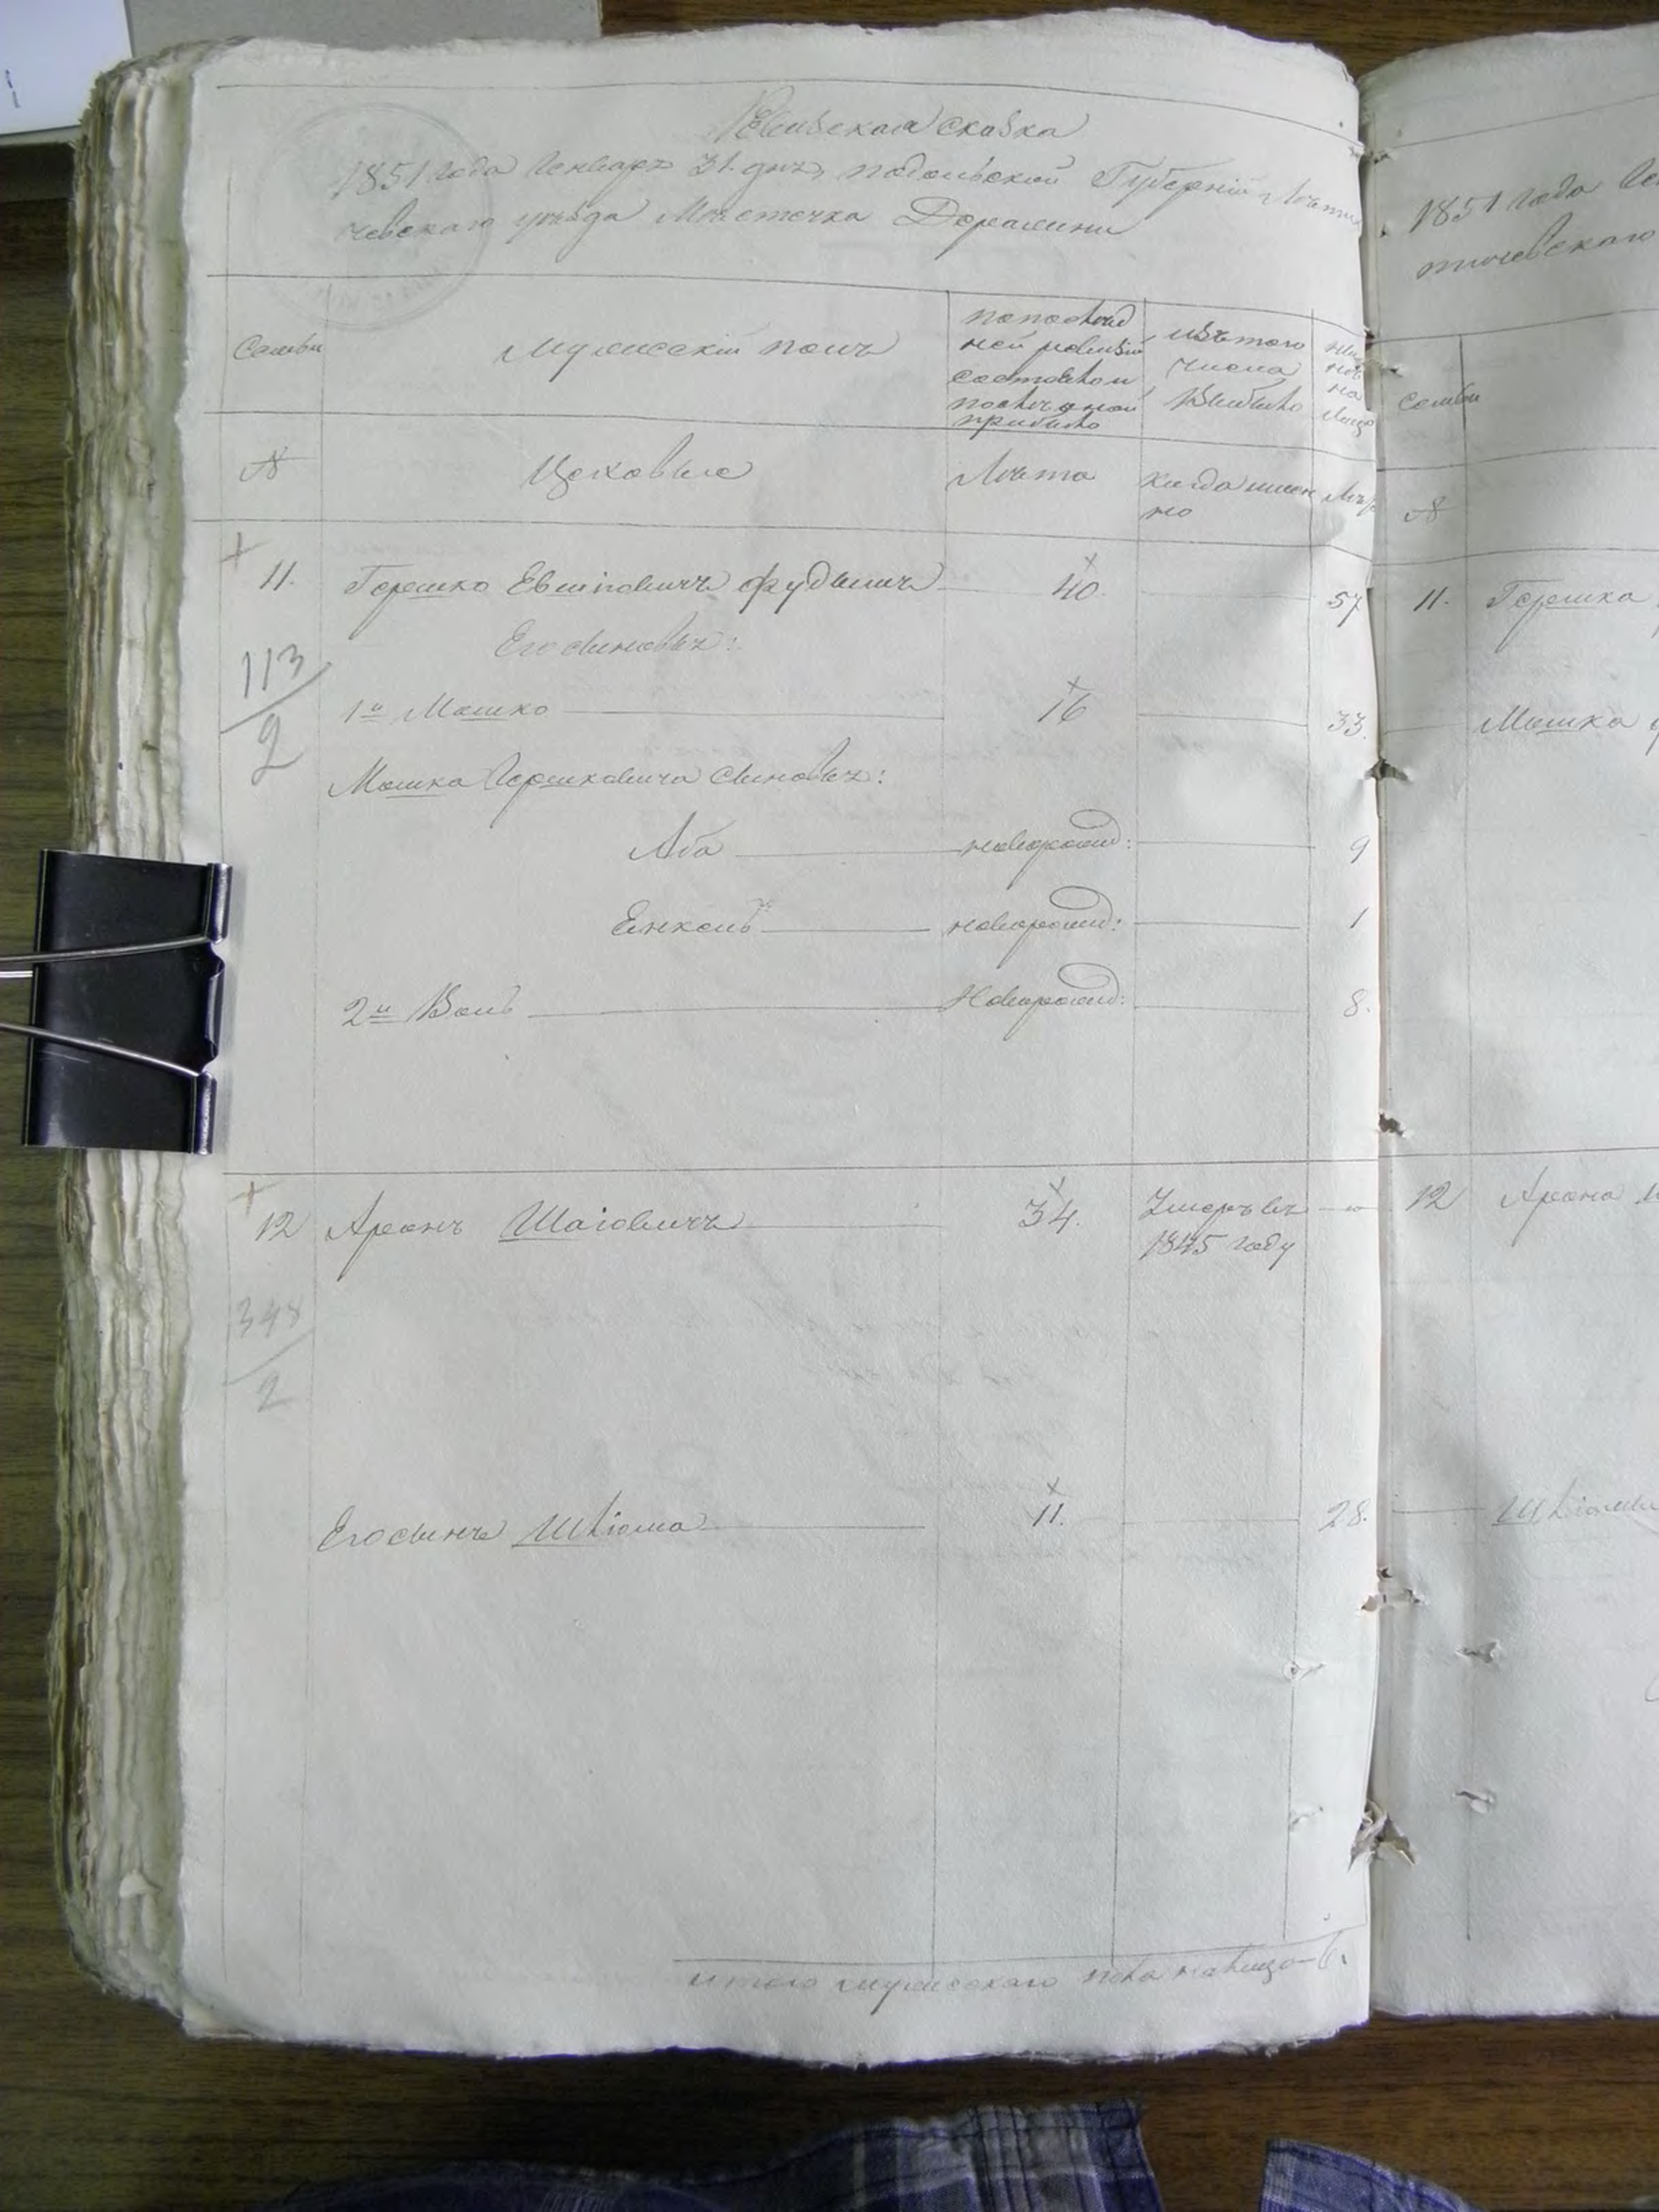 Ревизская сказка
1851 года Генваря 31. дня, подольской Губерніи Лети
чевского уезда Местечка Деражни
Семьи
Мужескій полъ
по послед
ней ревизіи
состояло и
после оной
прибыло
изъ того
числа
Выбыло
ныне
на
лицо
№
Цеховые
Лета
Когда имен
но
Лета
11.
Гершко Евшіовичъ фудыша
40.
57
Его сыновья:
113
2
1й Мошко
16
33.
Мошка Гершковича сыновья:
Аба
новорожд:
9
Енкель
новорожд:
1
2й Волъ
Новорожд:
8.
12
Аронъ Шаіовичъ
34.
Умеръ въ
1845 году
348
2
Его сынъ Шліома
11.
28.
итого мужескаго пола на лицо 6.
1851 года Ге
тичевского
Семьи
№
11.
Гершка
Мошка
12
Арона
Шліомы